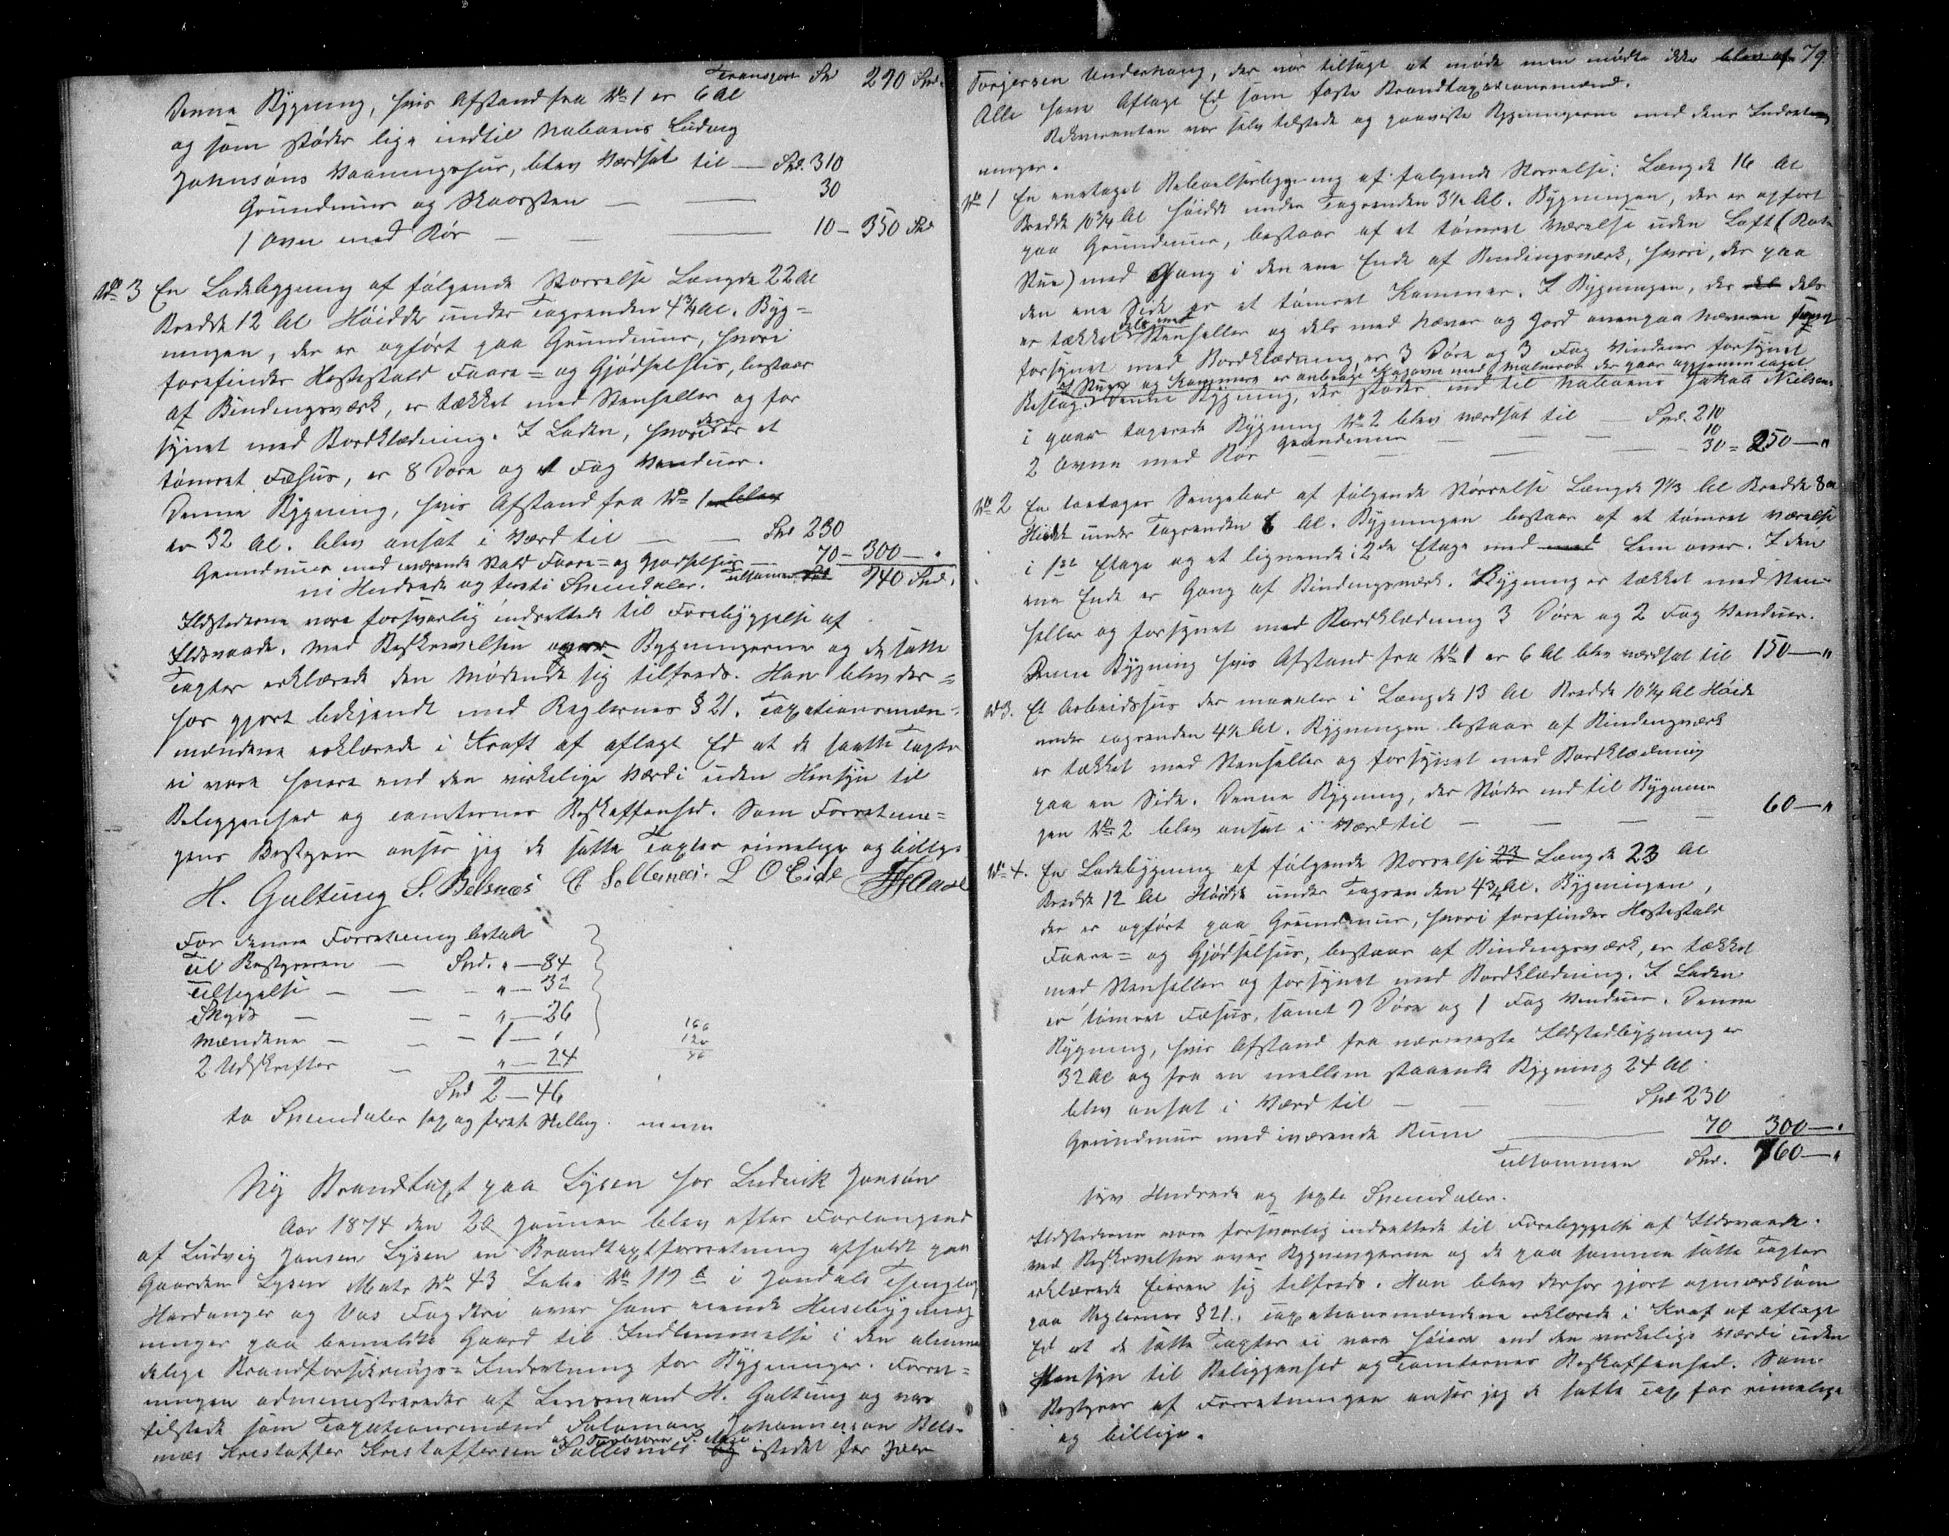 Transport Spd 290 Spd.
Denne Bygning, hvis Afstand fra No 1 er 6 Al
og som støder lige indtil Naboens Ludvig
Johnsøns Vaaningshus, blev værdsat til — Spd. 310
Grundmuur og Skorsten — — 30
1 Ovn med Rør — — — 10 — 350 Spd
No 3 En Ladebygning af følgende Størrelse Længde 22 Al
Bredde 12 Al Høidde under Tagrenden 4 3/4 Al. Byg=
ningen, der er opført paa Grundmuur, hvori
forefindes Hestestald Faare= og Gjødselhus, bestaar
af Bindingsværk, er tækket med Stenheller og for
synet med Bordklædning. I Laden, hvori der er et
tømret Fæhus, er 8 Døre og 1 Fag Vinduer.
Denne Bygning, hvis Afstand fra No 1 blev
er 32 Al. blev ansat i Værd til — — Spd 230
Grundmuur med værende Stald Faare= og Gjødselhus — 70 — 300 — "
ni Hundrede og forti Speciedaler. Tilsammen Spd 940 Spd.
Ildstederne vare forsvarlig indrettede til Forebyggelse af
Ildsvaade. Med Beskrivelsen over Bygningerne og de satte
Taxter erklærede den Mødende sig tilfreds. Han blev der=
for gjort bekjendt med Reglernes § 21. Taxationsmæn=
mændene erklærede i Kraft af aflagt Ed at de satte Taxter
ei vare høiere end den virkelige Værdi uden Hensyn til
Beliggenhed og Tomternes Beskaffenhed. Som Forretnin=
gens Bestyrer anser jeg de satte Taxter rimelige og billige
H. Galtung S. Belsnæs C Sollesnes. L O Eide
For denne Forretning betalt
Til Bestyreren — Spd. " — 84
Tilsigelse — — — " — 32
Skyds — — — " — 26
Mændene — — — 1 — "
2 Udskrifter — " — 24
Spd 2 — 46
to Speciedaler sex og firti Skilling.
160
120
Ny Brandtaxt paa Lysen for Ludvik Jonsøn
Aar 1874 den 20 Januar blev efter Forlangende
af Ludvig Jonsen Lysen en Brandtaxtforretning afholdt paa
Gaarden Lysen Matr No 43 Løbe No 119 b i Jondals Thinglag
Hardanger og Vos Fogderi over hans eiende Huusebygning
ninger paa bemeldte Gaard til Indlemmelse i den almin
delige Brandforsikrings=Indretning for Bygninger. Forret=
ningen administreredes af Lensmand H. Galtung og var
tilstede som Taxationsmænd Salamon Johannesson Bels=
næs Kristoffer Kristoffersen Sollesnes og istedet for Peder
79
Torgersen Underhaug, der var tilsagt at møde men mødte ikke blev af
Alle som Aflagt Ed som faste Brandtaxationsmænd.
Rekvirenten var selv tilstede og paaviste Bygningerne med dens Indret
ninger.
No 1 En enetaget Beboelsesbygning af følgende Størrelse: Længde 16 Al
Bredde 10 3/4 Al Høidde under Tagrenden 3 1/2 Al. Bygningen, der er opført
paa Grundmuur, bestaar af et tømret Værelse uden Loft (Røk=
Stue) med Gang i den ene Ende af Bindingsværk, hvori, der paa
den ene Side er et tømret Kammer. I Bygningen, der del dels
er tækket dels med Stenheller og dels med Næver og Jord ovenpaa Næveren samt
forsynet med Bordklædning er 3 Døre og 3 Fag Vinduer forsynet
Beslag. Denne Bygning, der støder ind til Naboens Jakob Nielsens
i gaar taxerede Bygning No 2 blev værdsat til — Spd. 210
Grundmuur — — — 10
2 Ovne med Rør — — — 30 = 250 — "
No 2 En toetages Sengebod af følgende Størrelse Længde 7 1/3 Al Bredde 8 Al
Høidde under Tagrenden 6 Al. Bygningen bestaar af et tømret Værelse
i 1ste Etage og et lignende i 2de Etage med med Lem over. I den
ene Ende er Gang af Bindingsværk. Bygning er tækket med Sten=
heller og forsynet med Bordklædning 3 Døre og 2 Fag Vinduer.
Denne Bygning hvis Afstand fra No 1 er 6 Al blev værdsat til 150 — "
No 3. Et Arbeidshus der maaler i Længde 13 Al Bredde 10 1/4 Al Høide
under Tagrenden 4 1/2 Al. Bygningen bestaar af Bindingsværk
er tækket med Stenheller og forsynet med Bordklædning
paa en Side. Denne Bygning, der støder ind til Bygnin=
gen No 2 blev ansat i Værd til — — — 60 — "
No 4. En Ladebygning af følgende Størrelse 23 Længde 23 Al
Bredde 12 Al Høidde under Tagrenden 4 3/4 Al. Bygningen,
der er opført paa Grundmuur, hvori forefindes Hestestald
Faare= og Gjødselhus, bestaar af Bindingsværk, er tækket
med Stenheller og forsynet med Bordklædning. I Laden
er tømret Fæhus, samt 7 Døre og 1 Fag Vinduer. Denne
Bygning, hvis Afstand fra nærmeste Ildstedbygning er
32 Al og fra en mellem staaende Bygning 24 Al
blev ansat i Værd til — — — Spd 230
Grundmuur med værende Rum — 70 300 — "
Tilsammen Spd. 760 — "
syv Hundrede og sexti Speciedaler.
Ildstederne vare forsvarlig indrettede til Forebyggelse af Ildsvaade.
Med Beskrivelsen over Bygningerne og de paa samme satte Taxter
erklærede Eieren sig tilfreds. Han blev derfor gjort opmærksom
paa Reglernes § 21. Taxationsmændene erklærede i Kraf af aflagt
Ed at de satte Taxter ei vare høiere end den virkelige Værdi uden
Hensyn til Beliggenhed og Tomternes Beskaffenhed. Som
Bestyrer af Forretningen anser jeg de satte Tax for rimelige
og billige.